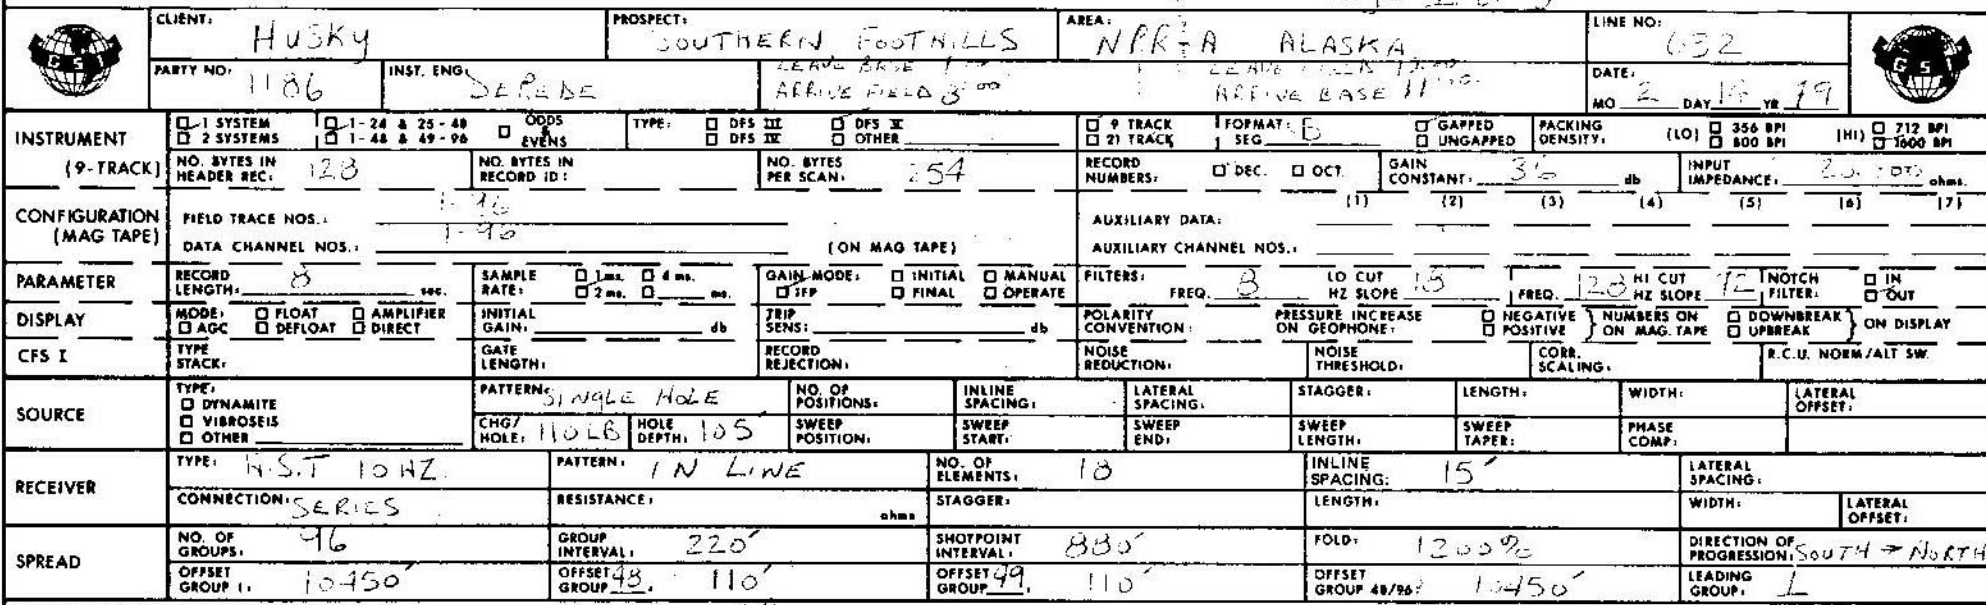 CLIENT: HUSKY PROSPECT: SOUTHERN FOOTHILLS AREA: NPR-A ALASKA LINE NO: 632
GSI GSI
PARTY NO: 1186 INST. ENG: LEAVE BASE ARRIVE FIELD 3:00 LEAVE ARRIVE BASE 11:00 DATE: MO 2 DAY YR 79
INSTRUMENT 1 SYSTEM 1-24 & 25-48 ODDS & EVENS TYPE: DFS III DFS V 9 TRACK FORMAT: SEG B GAPPED PACKING DENSITY: (LO) 356 BPI (HI) 712 BPI
2 SYSTEMS 1-48 & 49-96 DFS IV OTHER 21 TRACK UNGAPPED 800 BPI 1600 BPI
(9-TRACK) NO. BYTES IN HEADER REC: 128 NO. BYTES IN RECORD ID: NO. BYTES PER SCAN: 254 RECORD NUMBERS: DEC. OCT. GAIN CONSTANT: 36 db INPUT IMPEDANCE: ohms.
CONFIGURATION (MAG TAPE) FIELD TRACE NOS.: 1-96 AUXILIARY DATA: (1) (2) (3) (4) (5) (6) (7)
DATA CHANNEL NOS.: 1-96 (ON MAG TAPE) AUXILIARY CHANNEL NOS.:
PARAMETER RECORD LENGTH: 8 sec. SAMPLE RATE: 1 ms. 4 ms. 2 ms. ms. GAIN MODE: INITIAL MANUAL IFP FINAL OPERATE FILTERS: FREQ. 8 LO CUT HZ SLOPE 18 FREQ. 128 HI CUT HZ SLOPE 72 NOTCH FILTER: IN OUT
DISPLAY MODE: FLOAT AMPLIFIER AGC DEFLOAT DIRECT INITIAL GAIN: db TRIP SENS: db POLARITY CONVENTION: PRESSURE INCREASE ON GEOPHONE: NEGATIVE POSITIVE NUMBERS ON ON MAG. TAPE DOWNBREAK UPBREAK ON DISPLAY
CFS I TYPE STACK: GATE LENGTH: RECORD REJECTION: NOISE REDUCTION: NOISE THRESHOLD: CORR. SCALING: R.C.U. NORM/ALT SW.
SOURCE TYPE: DYNAMITE VIBROSEIS OTHER PATTERN: SINGLE HOLE NO. OF POSITIONS: INLINE SPACING: LATERAL SPACING: STAGGER: LENGTH: WIDTH: LATERAL OFFSET:
CHG/HOLE: 110LB HOLE DEPTH: 105' SWEEP POSITION: SWEEP START: SWEEP END: SWEEP LENGTH: SWEEP TAPER: PHASE COMP:
RECEIVER TYPE: H.S.T 10 HZ. PATTERN: IN LINE NO. OF ELEMENTS: 18 INLINE SPACING: 15' LATERAL SPACING:
CONNECTION: SERIES RESISTANCE: ohms STAGGER: LENGTH: WIDTH: LATERAL OFFSET:
SPREAD NO. OF GROUPS: 96 GROUP INTERVAL: 220' SHOTPOINT INTERVAL: 880' FOLD: 1200% DIRECTION OF PROGRESSION: SOUTH → NORTH
OFFSET GROUP 1: 10450' OFFSET GROUP 48: 110' OFFSET GROUP 49: 110' OFFSET GROUP 48/96: 10450' LEADING GROUP: 1